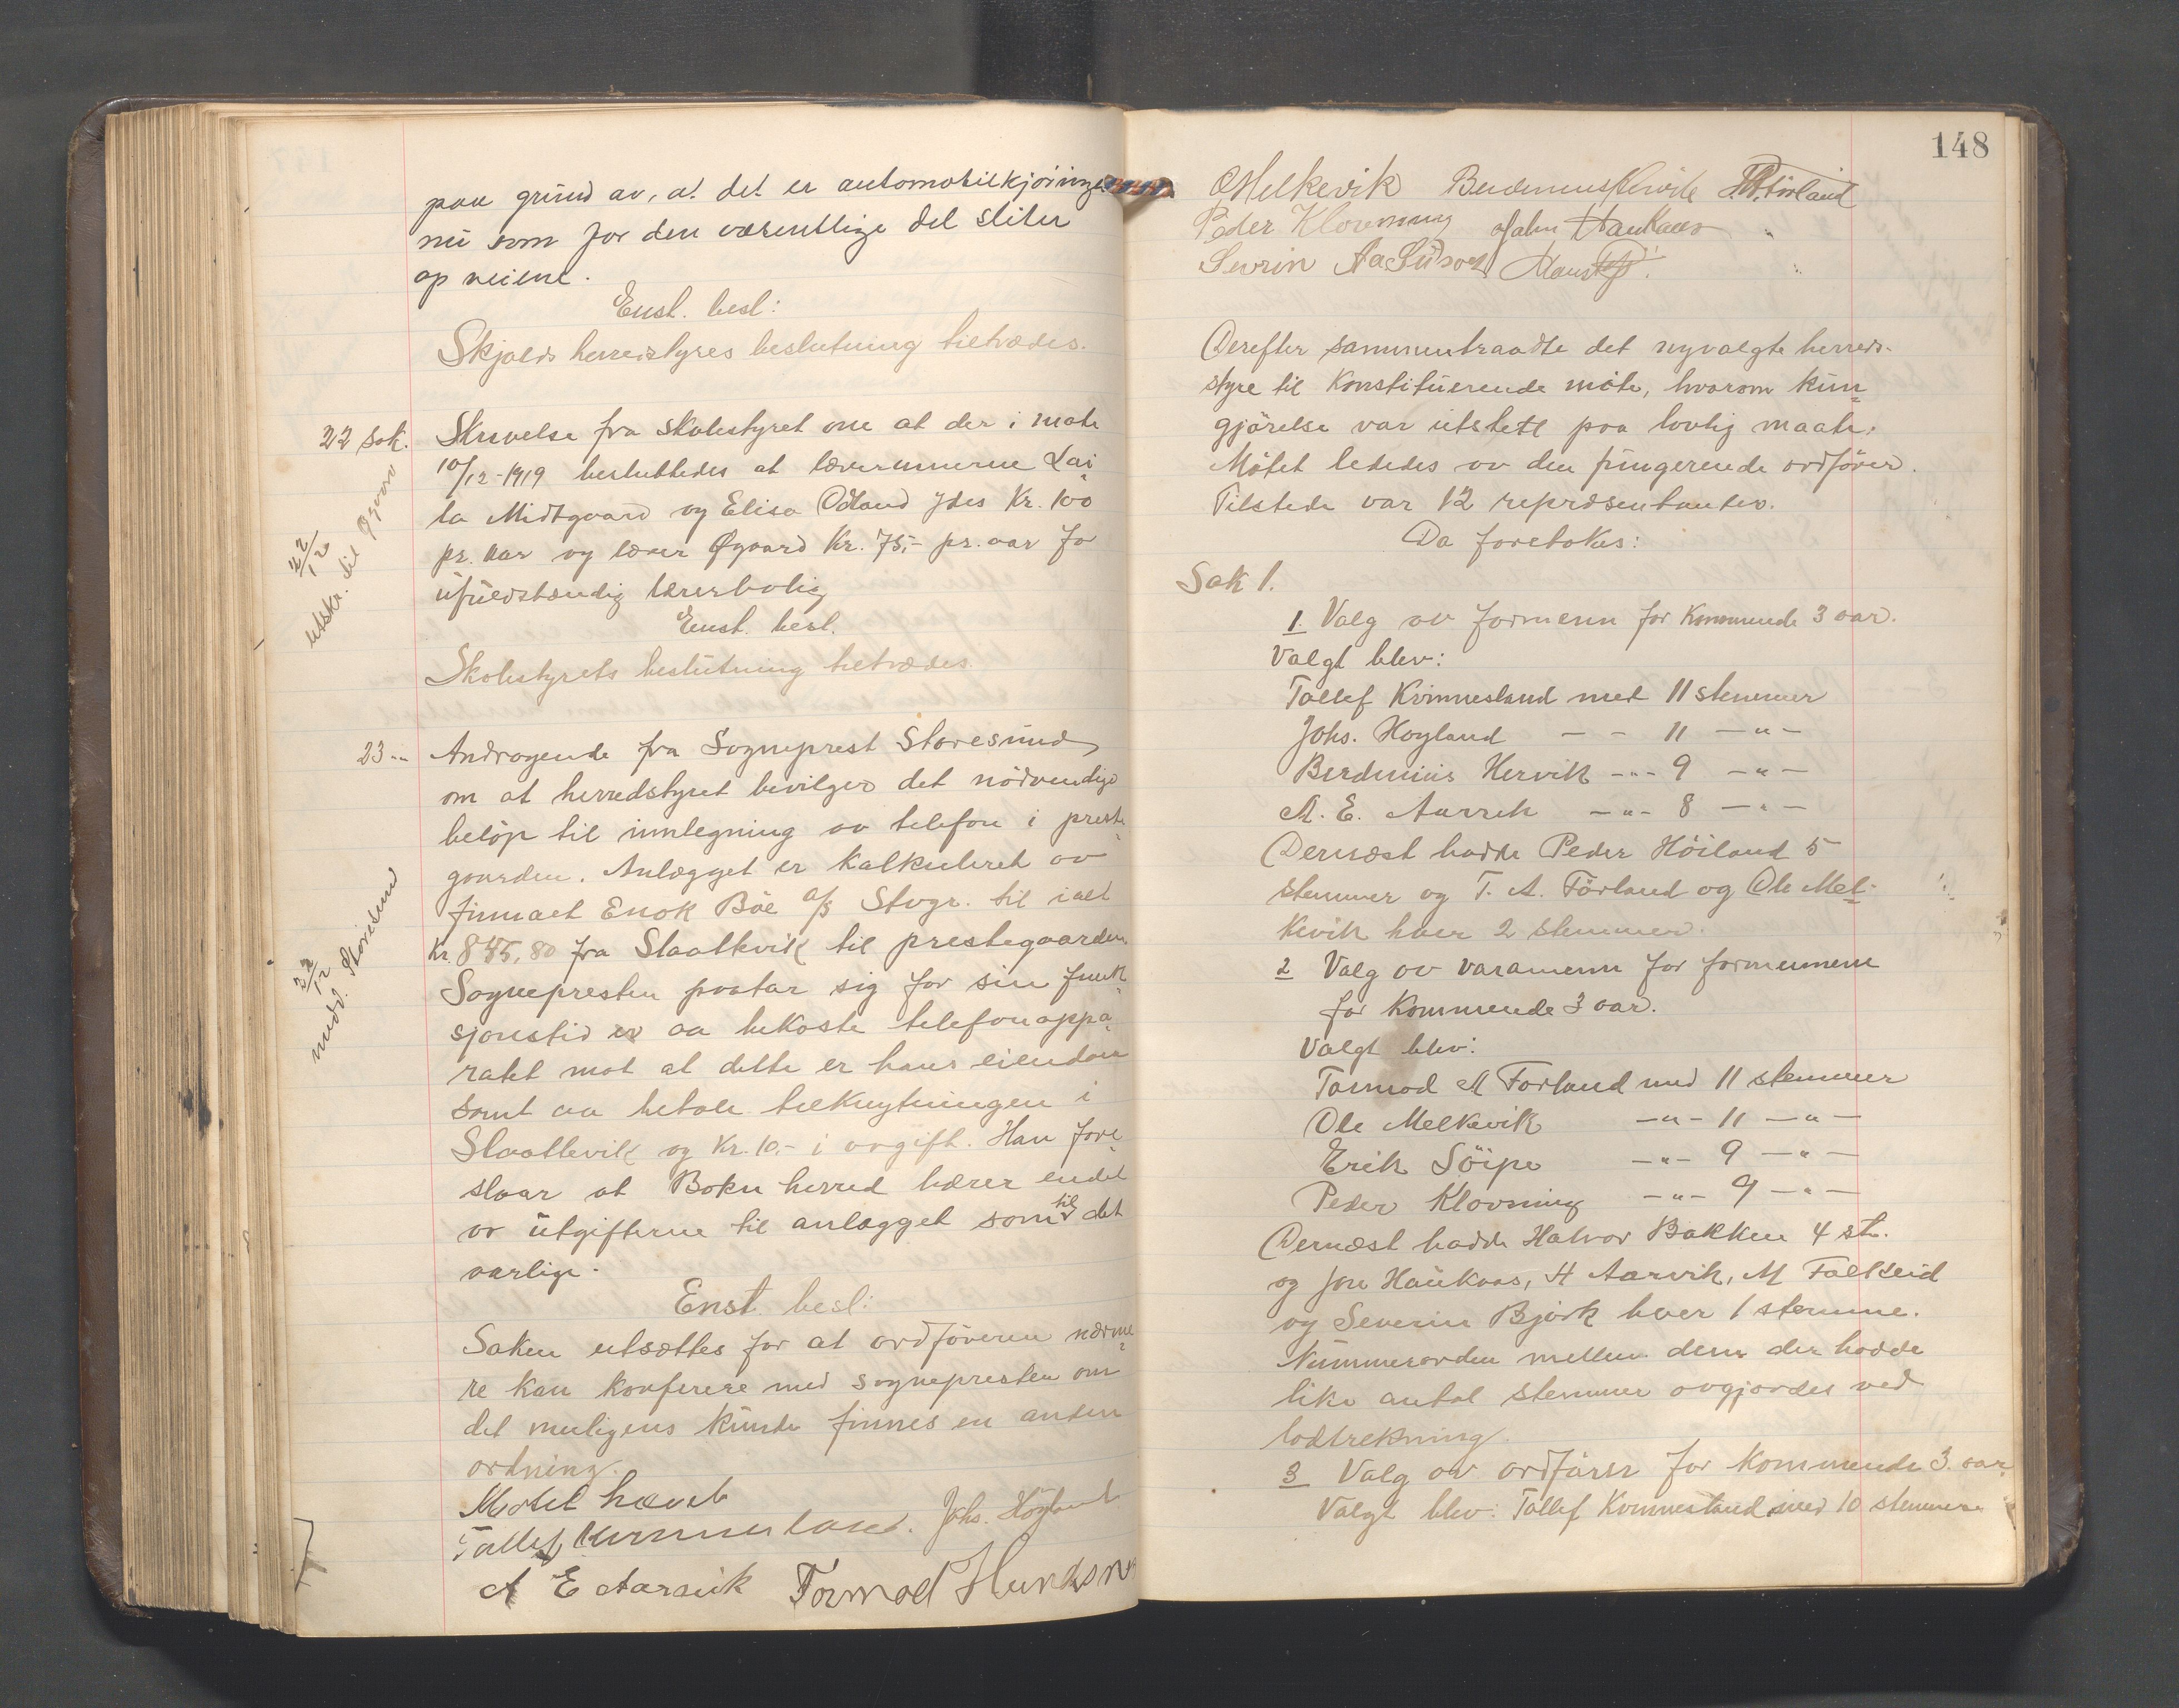 paa grund av, at det er automobilkjøringen
nu som for den væsentlige del sliter
op veiene.
Enst. besl:
Skjolds herredstyres beslutning tiltrædes.
22 sak. Skrivelse fra skolestyret om at der i møte
10/12-1919 besluttedes at lærerinnerne Lai
la Midtgaard og Elisa Odland ydes Kr. 100
pr. aar og lærer Øgaard Kr. 75,- pr. aar for
ufuldstændig lærerbolig
Enst. besl.
Skolestyrets beslutning tiltrædes.
22/12 utskr. til Øgaard
23 -"- Andragende fra Sogneprest Storesund
om at herredstyret bevilger det nödvendige
belöp til innlegning av telefon i preste
gaarden. Anlægget er kalkuleret av
firmaet Enok Böe A/S Stvgr. til ialt
Kr. 845,80 fra Slaattevik til prestegaarden
Sognepresten paatar sig for sin funk
sjonstid er aa bekoste telefonappa
ratet mot at dette er hans eiendom
samt aa betale tilknytningen i
Slaattevik og Kr. 10,- i avgift. Han fore
slaar at Bokn herred bærer endel
av utgifterne til anlægget som til det
varlige.
22/12 medd. Storesund
Enst. besl:
Saken utsættes for at ordföreren nærme
re kan konferere med sognepresten om
det muligens kunde finnes en anden
ordning.
Mötet hævet
Tallef Kvinnesland. Johs. Höyland
A E Aarvik Tormod Hundsnes
148
O Melkevik Berdinius Hervik T. A. Förland
Peder Klovning John Haukaas
Sevrin
Derefter sammentraadte det nyvalgte herreds-
styre til konstituerende möte, hvorom kun
gjörelse var utstett paa lovlig maate.
Mötet lededes av den fungerende ordförer.
Tilstede var 12 repræsentanter.
Da foretokes:
Sak 1.
1. Valg av formenn for kommende 3 aar.
Valgt blev:
Tallef Kvinnesland med 11 stemmer
Johs. Hoyland - - 11 -"-
Berdinius Hervik -"- 9 -"-
A. E. Aarvik -"- 8 -"-
Dernæst hadde Peder Höiland 5
stemmer og T. A. Förland og Ole Mel-
kevik hver 2 stemmer.
2 Valg av varamenn for formennene
for kommende 3 aar.
Valgt blev:
Tormod A Forland med 11 stemmer
Ole Melkevik -"- 11 -"-
Erik Söipe -"- 9 -"-
Peder Klovning -"- 9 -"-
Dernæst hadde Halvor Bakken 4 st.
og Jon Haukaas, H Aarvik, M Falkeid
og Severin Bjørk hver 1 stemme.
Nummerorden mellem dem der hadde
like antal stemmer avgjordes ved
lodtrekning.
3 Valg av ordförer for kommende 3 aar.
Valgt blev: Tallef Kvinnesland med 10 stemmer